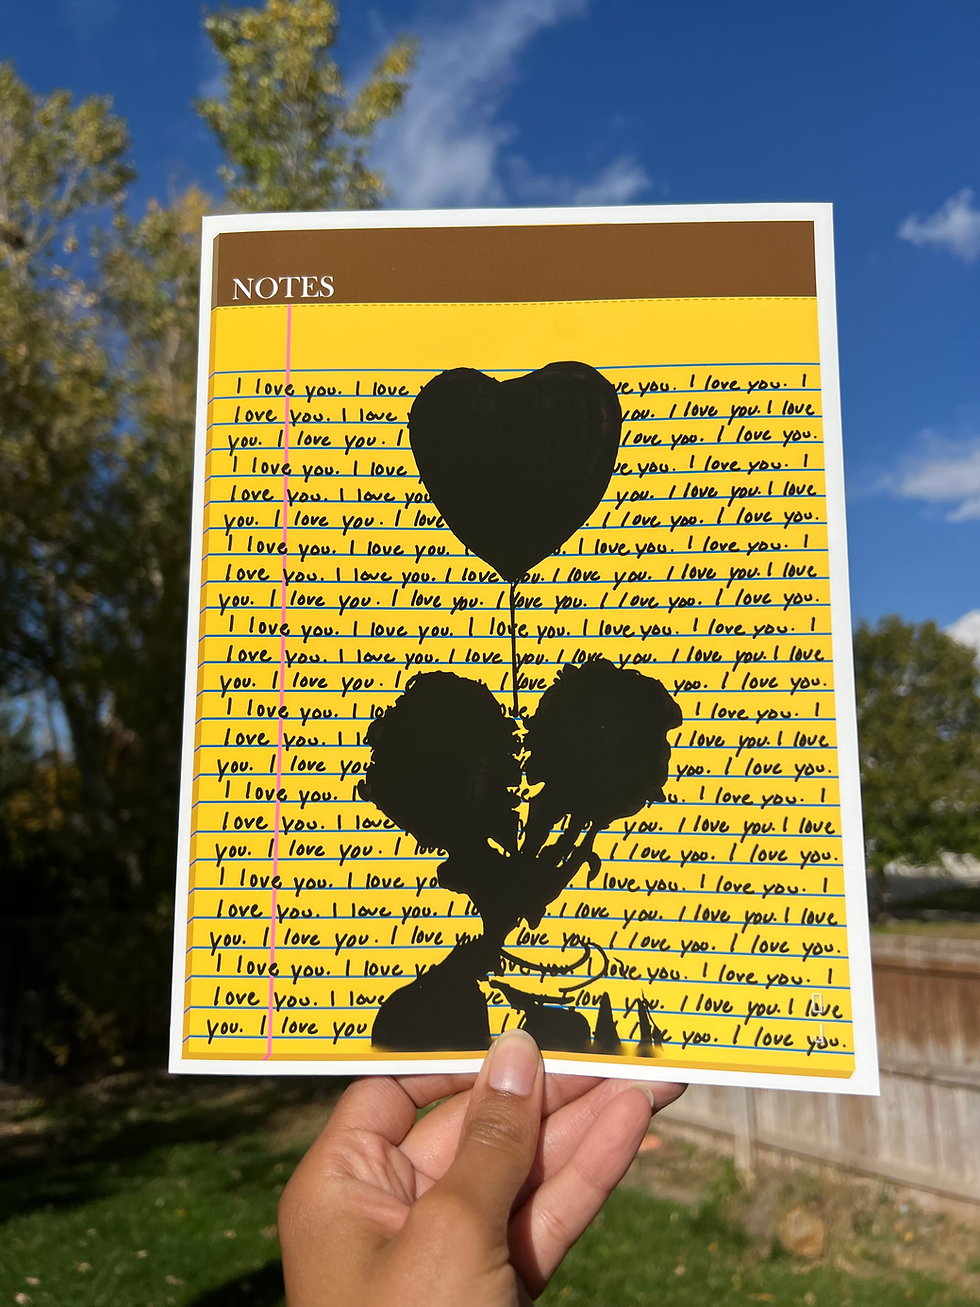 NOTES
I love you. I love you. I love you. I
love you. I love you. I love you. I love
you. I love you. I I love you. I love you.
I love you. I love you. I love you. I
love you. I love you you. I love you. I love
you. I love you. I love I love you. I love you.
I love you. I love you. I I love you. I love you. I
love you. I love you. I love you. I love you. I love you. I love
you. I love you. I love you. I love you. I love you. I love you.
I love you. I love you. I love you. I love you. I love you. I
love you. I love you. I love you. I love you. I love you. I love
you. I love you. I love you. I love you.
I love you. I I love you. I
love you. I love I love you. I love
you. I love you you. I love you.
I love you. I I love you. I
love you. I love you. I love you. I love
you. I love you. I love I love you. I love you.
I love you. I love you. I love you. I love you. I
love you. I love you. I I love you. I love you. I love
you. I love you. I love you. I love you. I love you. I love you.
I love you. I love you love you. I love you. I love you. I
love you. I love love you. I love you. I love
you. I love you I you. I love you.